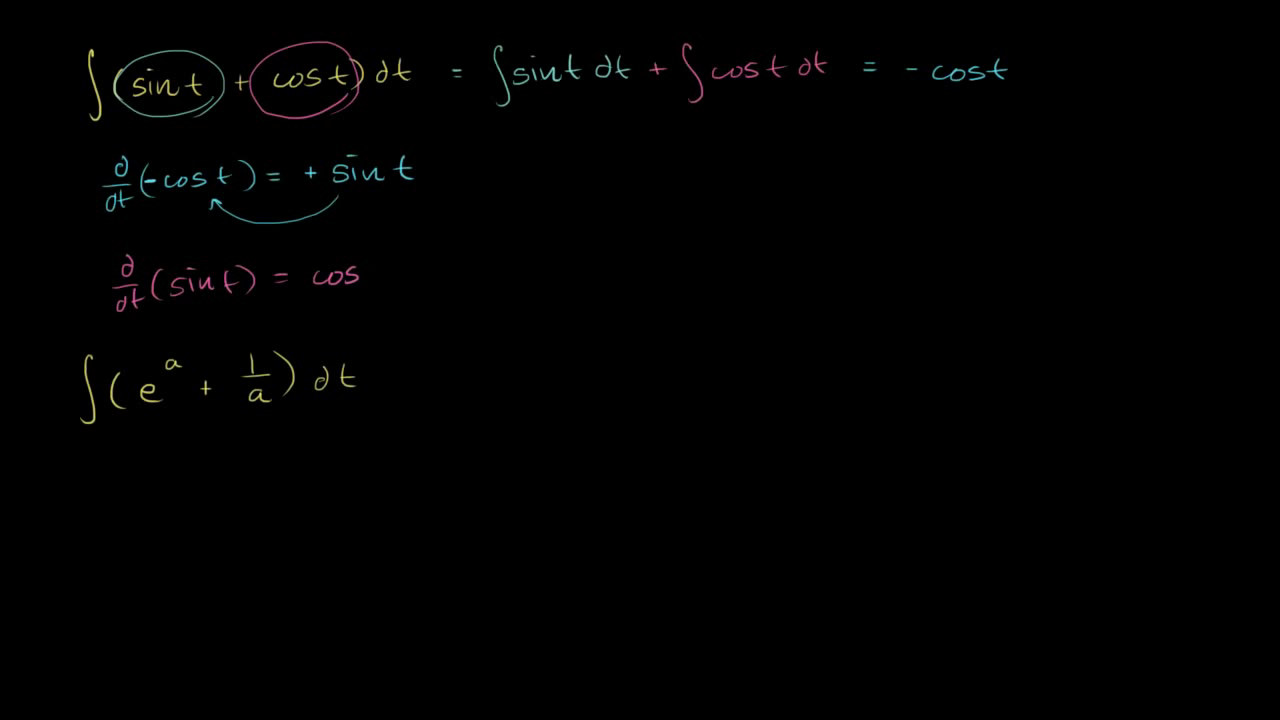 ∫(sin t + cos t) dt = ∫sin t dt + ∫cos t dt = - cos t
d/dt(-cos t) = + sin t
d/dt(sin t) = cos
∫(e^a + 1/a) dt